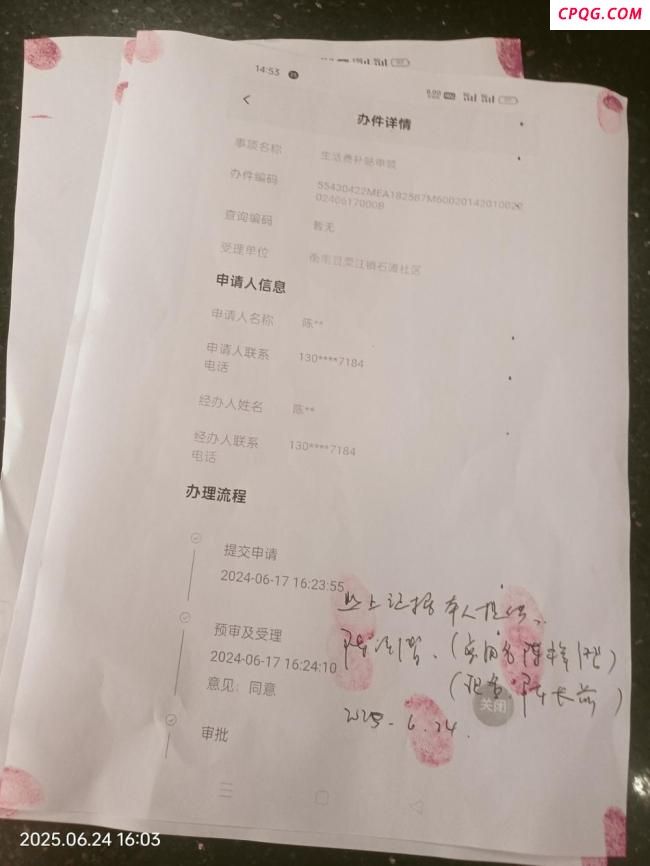 CPQG.COM
14:53
办件详情
事项名称 生活费补贴申领
办件编码 55430422MEA182587M60020142010022
0240617000B
查询编码 暂无
受理单位 衡南县栗江镇石滩社区
申请人信息
申请人名称 陈**
申请人联系 130****7184
电话
经办人姓名 陈**
经办人联系 130****7184
电话
办理流程
提交申请
2024-06-17 16:23:55
以上证据本人提供.
预审及受理
2024-06-17 16:24:10
意见：同意
关闭
2025-6.24.
审批
2025.06.24 16:03